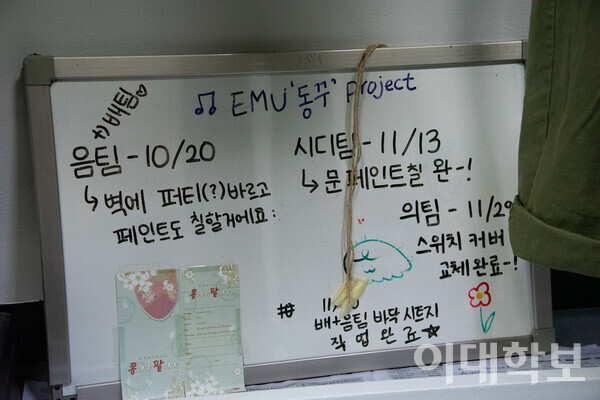 ♫ EMU '동꾸' project
배팀♡
음팀 - 10/20
↳ 벽에 퍼티(?)바르고
페인트도 칠할거에요:
시디팀 - 11/13
↳ 문 페인트칠 완~!
의팀 - 11/29
스위치 커버
교체완료~!
배+음팀 바닥 시트지
작업 완료☆
콩 팥
콩 팥
이대학보